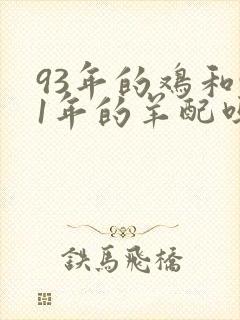 93年的鸡和
1年的羊配
鉄馬飛橋